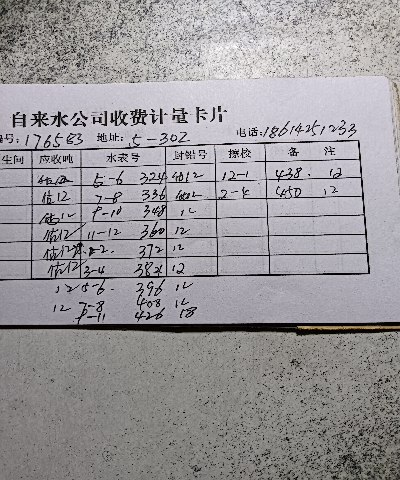 自来水公司收费计量卡片
号: 176583 地址: 5-302 电话: 18614251233
生间 应收吨 水表号 封铅号 撩校 备 注
估12 5-6 324 12 12-1 438 12
估12 7-8 336 12 2-4 450 12
估12 9-10 348 12
估12 11-12 360 12
估12 1-2 372 12
估12 3-4 384 12
12 5-6 396 12
12 7-8 408 12
9-11 426 18